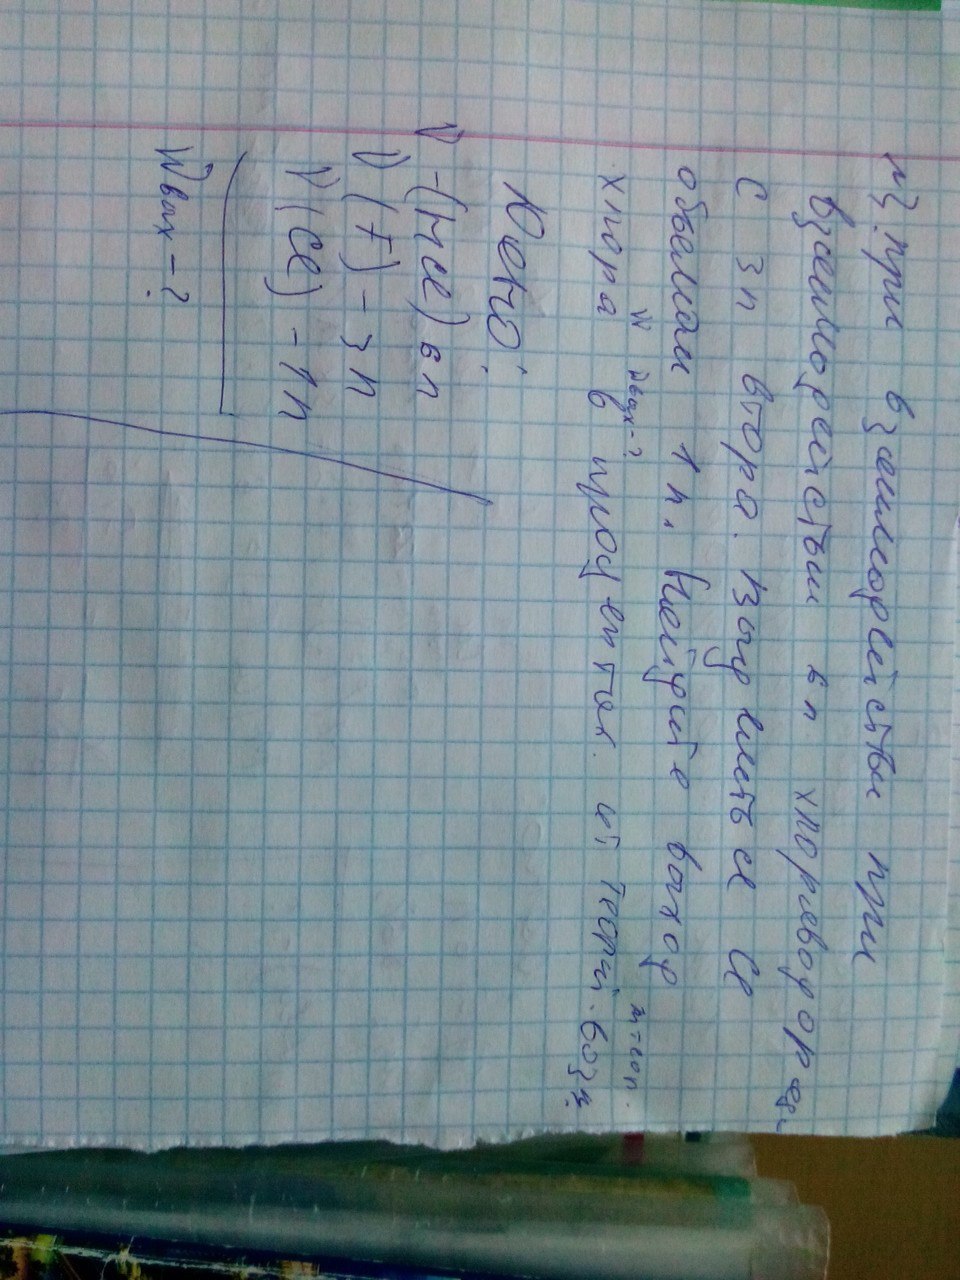 №3. При взаимодействии при
взаимодействии 6 л. хлороводорода
с 3 л фтора. Выделиться Cl
объемом 1 л. Найдите выход
W вых-?
хлора в процентах. от теорий. возм.
Дано:
V-(HCl) 6 л
V (F) - 3 л
V (Cl) - 1 л
W вых - ?